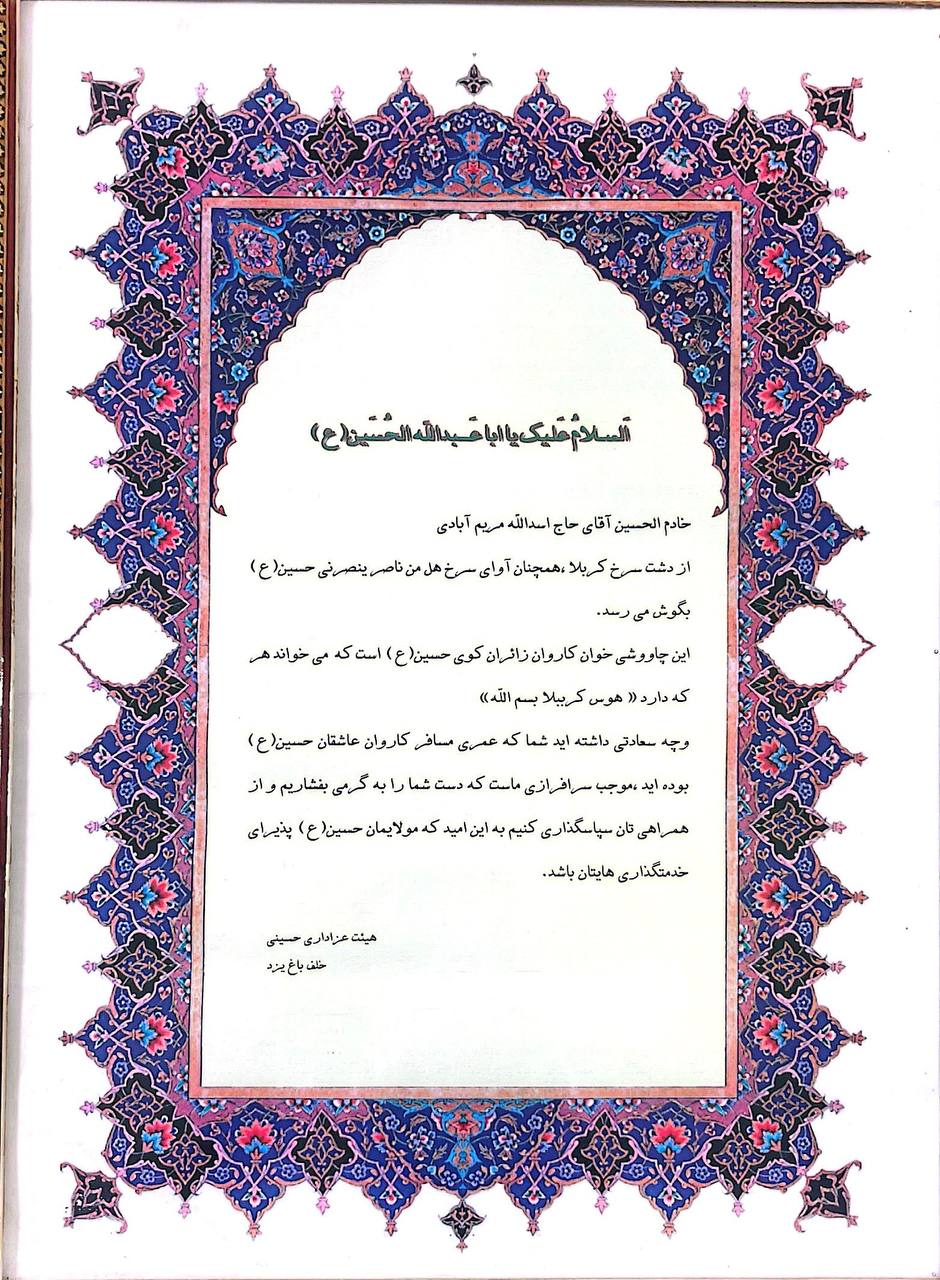 اَلسلامُ عَلیک یا ابا عَبدالله الحُسَین(ع)
خادم الحسین آقای حاج اسدالله مریم آبادی
از دشت سرخ کربلا ،همچنان آوای سرخ هل من ناصر ینصرنی حسین(ع)
بگوش می رسد.
این چاووشی خوان کاروان زائران کوی حسین(ع) است که می خواند هر
که دارد « هوس کرببلا بسم الله»
وچه سعادتی داشته اید شما که عمری مسافر کاروان عاشقان حسین(ع)
بوده اید ،موجب سرافرازی ماست که دست شما را به گرمی بفشاریم و از
همراهی تان سپاسگذاری کنیم به این امید که مولایمان حسین(ع) پذیرای
خدمتگذاری هایتان باشد.
هیئت عزاداری حسینی
خلف باغ یزد